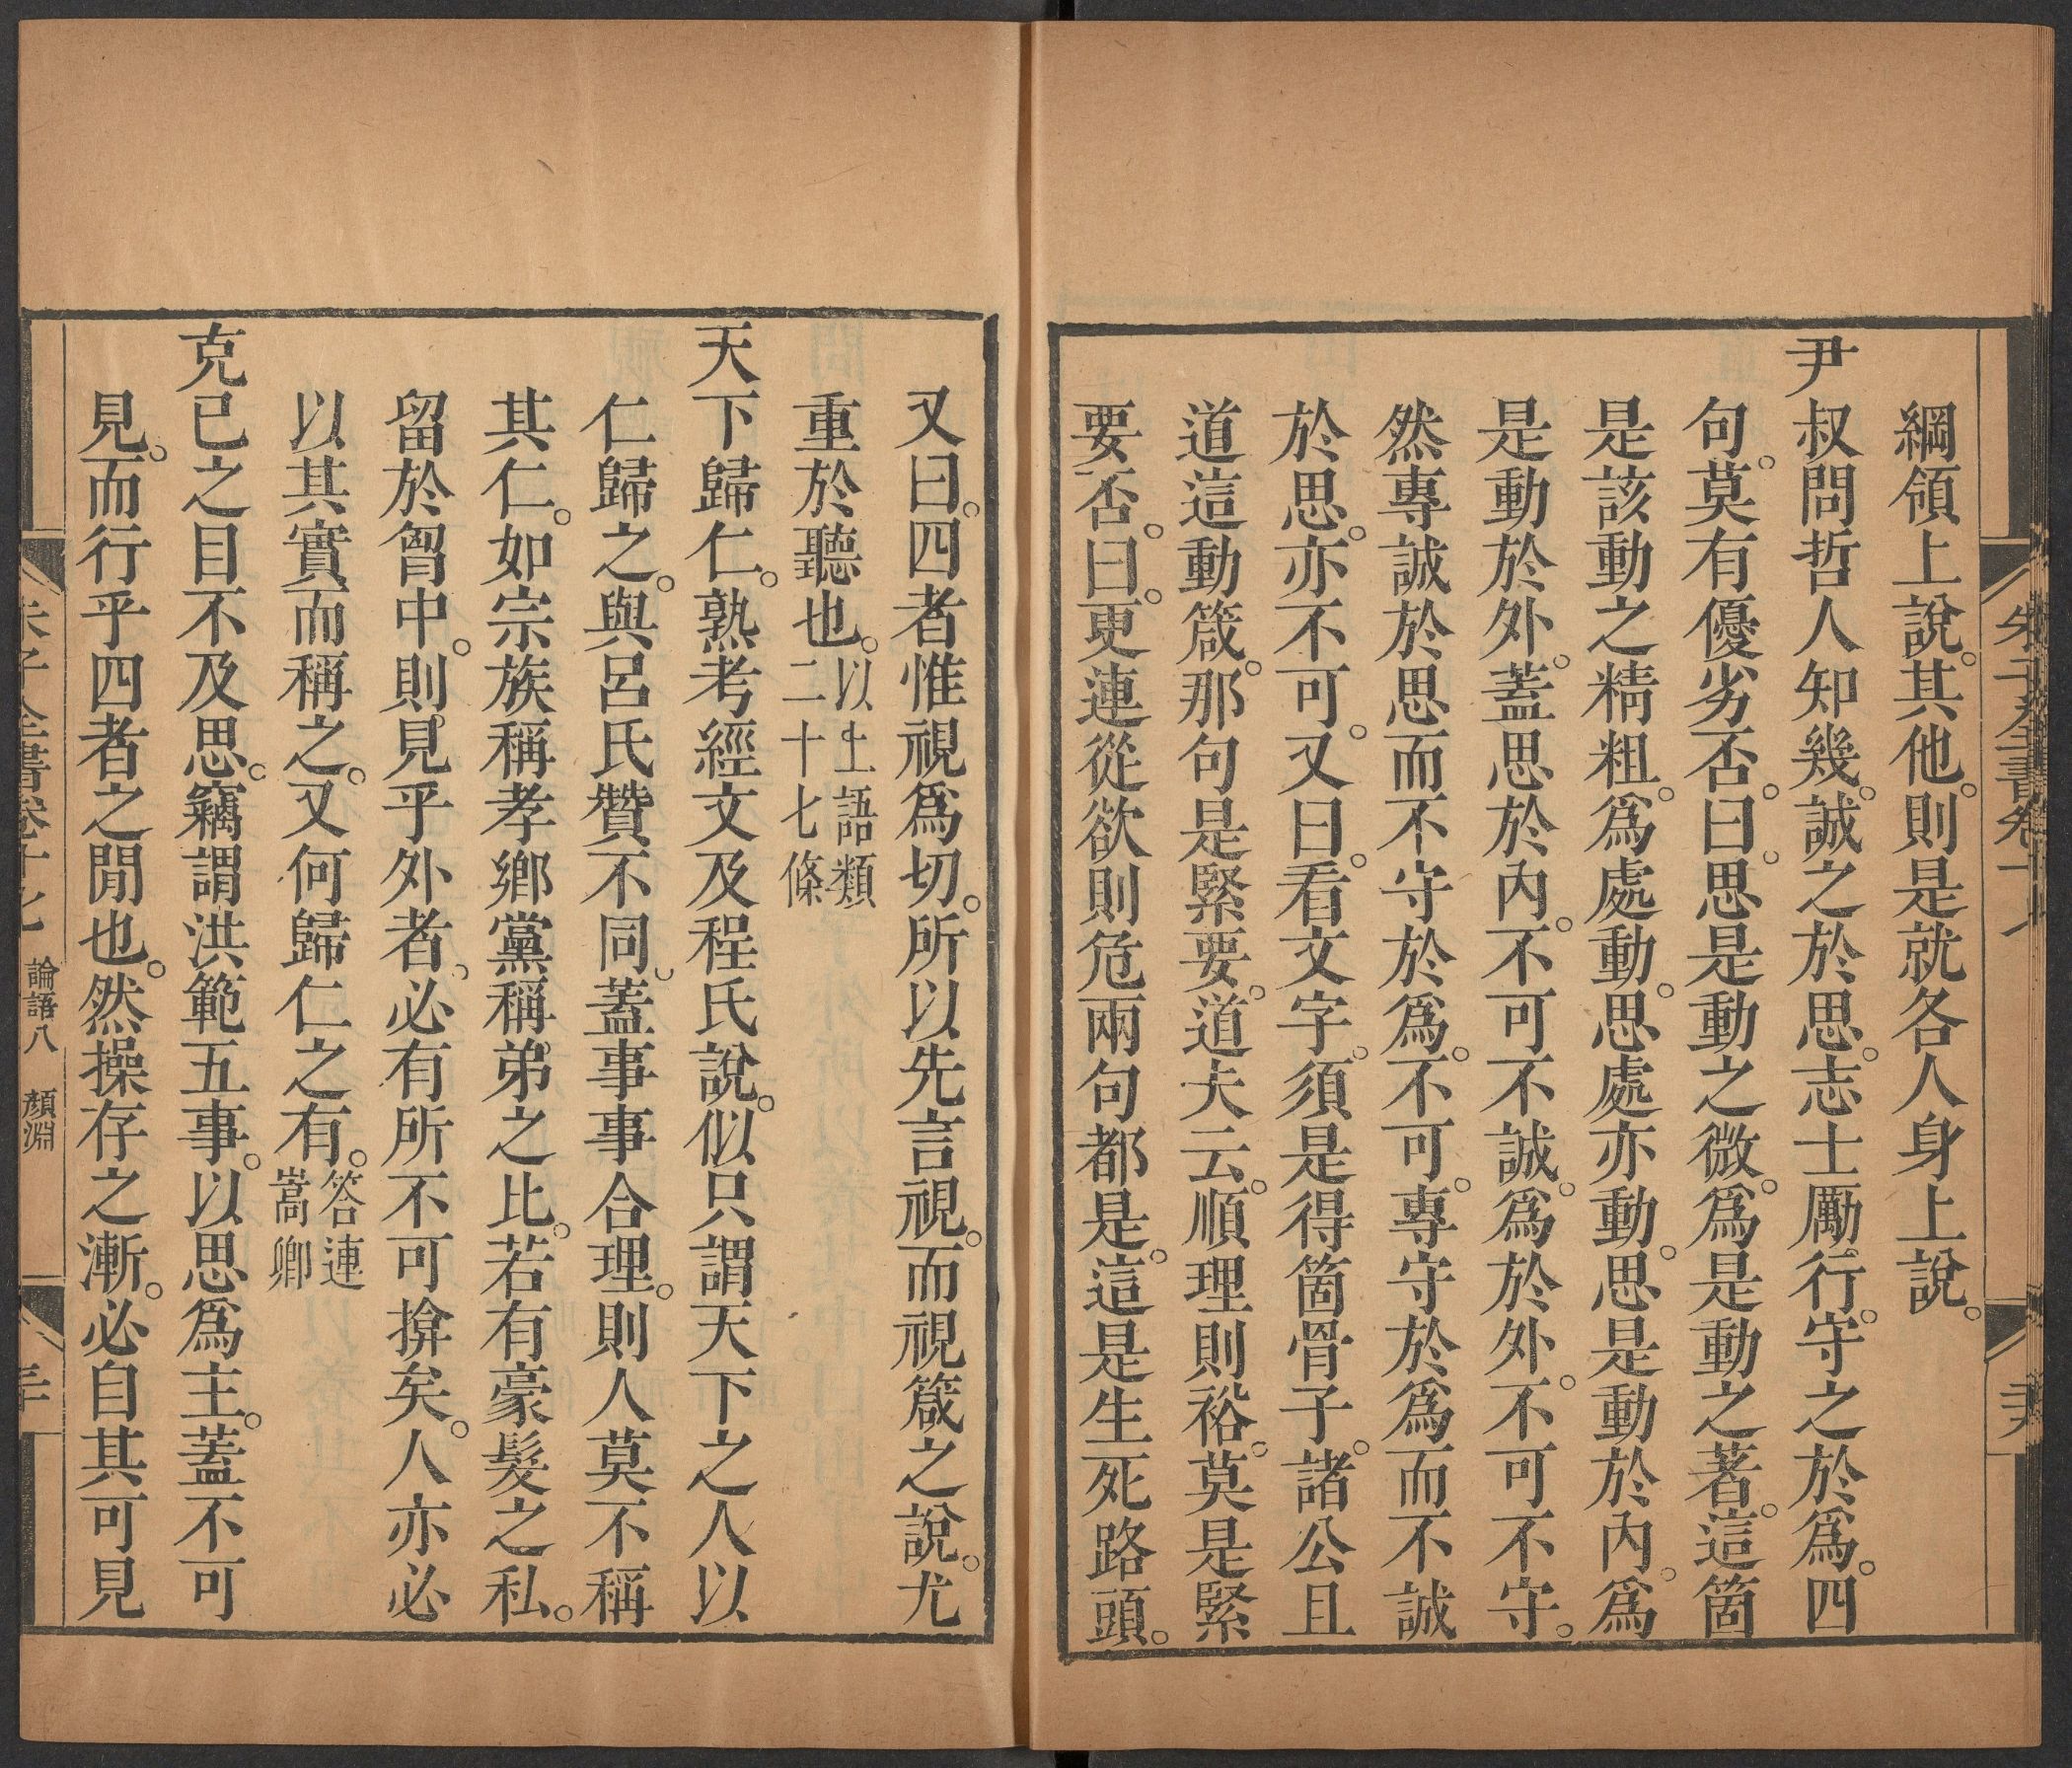 綱領上說。其他。則是就各人身上說。
尹叔問哲人知幾。誠之於思。志士厲行。守之於爲。四
句。莫有優劣否。曰。思是動之微。爲是動之著。這箇
是該動之精粗。爲處動。思處亦動。思是動於內。爲
是動於外。蓋思於內。不可不誠。爲於外。不可不守。
然專誠於思而不守於爲。不可。專守於爲而不誠
於思。亦不可。又曰。看文字。須是得箇骨子。諸公且
道這動箴。那句是緊要。道夫云。順理則裕。莫是緊
要否。曰。更連從欲則危兩句都是。這是生死路頭。
又曰。四者惟視爲切。所以先言視。而視箴之說。尤
重於聽也。以上語類
二十七條
天下歸仁。熟考經文及程氏說。似只謂天下之人以
仁歸之。與呂氏贊不同。蓋事事合理。則人莫不稱
其仁。如宗族稱孝鄉黨稱弟之比。若有豪髮之私。
留於胷中。則見乎外者。必有所不可揜矣。人亦必
以其實而稱之。又何歸仁之有。答連
嵩卿
克已之目不及思。竊謂洪範五事。以思爲主。蓋不可
見。而行乎四者之閒也。然操存之漸。必自其可見
朱子全書卷十七 論語八 顏淵